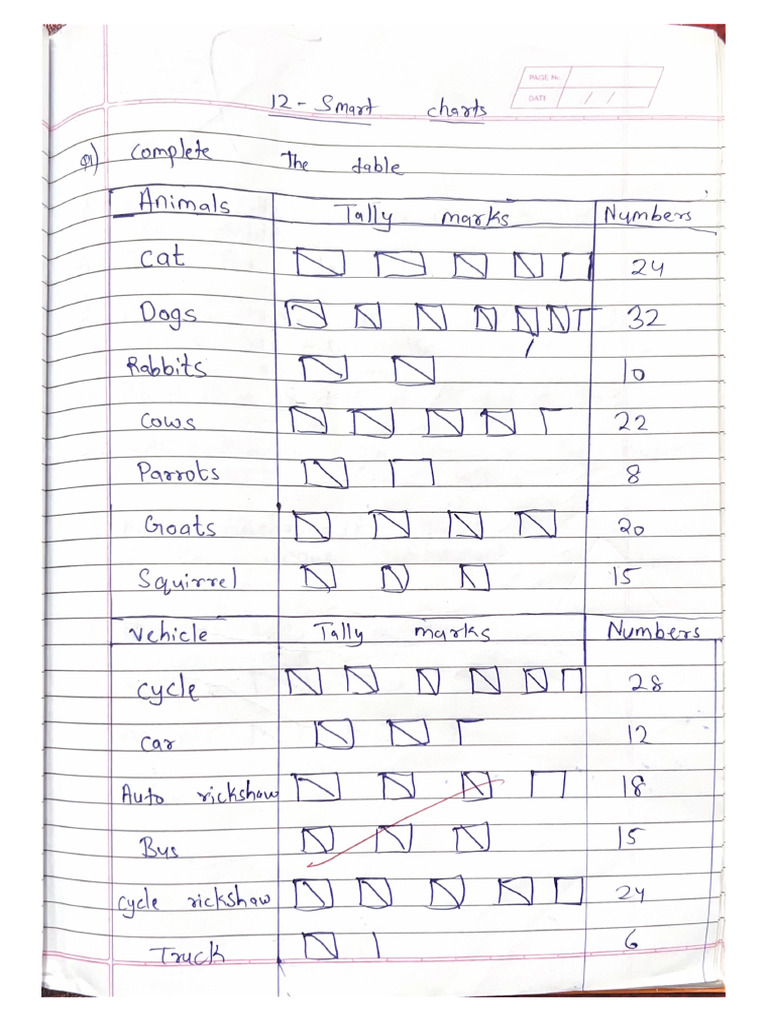 PAGE No.
DATE / /
12 - Smart charts
Q1) Complete The table
Animals Tally marks Numbers
Cat 24
Dogs 32
Rabbits 10
Cows 22
Parrots 8
Goats 20
Squirrel 15
Vehicle Tally marks Numbers
Cycle 28
Car 12
Auto rickshaw 18
Bus 15
Cycle rickshaw 24
Truck 6